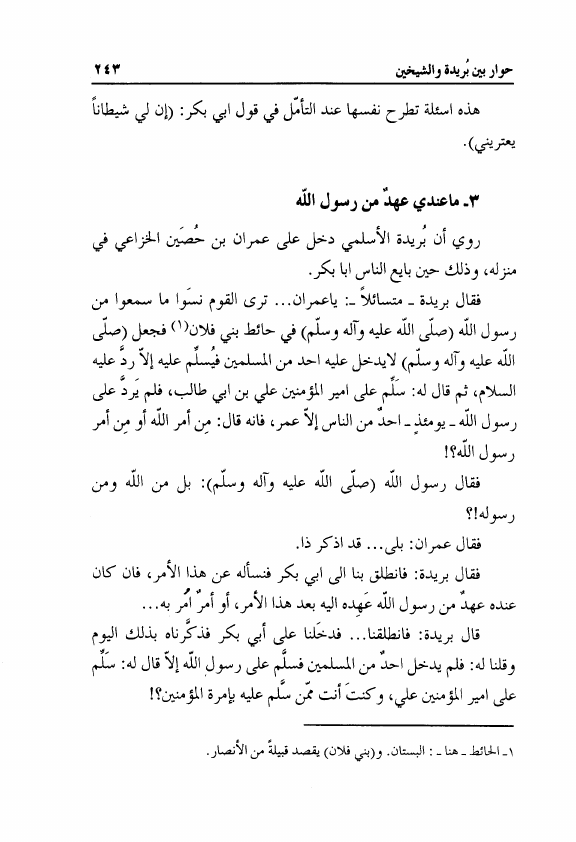 حوار بين بُريدة والشيخين ٢٤٣
هذه اسئلة تطرح نفسها عند التأمّل في قول ابي بكر: (إن لي شيطاناً
يعتريني).
٣ـ ماعندي عهدٌ من رسول اللّه
روي أن بُريدة الأسلمي دخل على عمران بن حُصَين الخزاعي في
منزله، وذلك حين بايع الناس ابا بكر.
فقال بريدة ـ متسائلاً ـ: ياعمران... ترى القوم نسَوا ما سمعوا من
رسول اللّه (صلّى اللّه عليه وآله وسلّم) في حائط بني فلان(١) فجعل (صلّى
اللّه عليه وآله وسلّم) لايدخل عليه احد من المسلمين فيُسلِّم عليه إلاّ ردَّ عليه
السلام، ثم قال له: سَلِّم على امير المؤمنين علي بن ابي طالب، فلم يَردَّ على
رسول اللّه ـ يومئذٍ ـ احدٌ من الناس إلاّ عمر، فانه قال: مِن أمر اللّه أو مِن أمر
رسول اللّه؟!
فقال رسول اللّه (صلّى اللّه عليه وآله وسلّم): بل من اللّه ومن
رسوله!؟
فقال عمران: بلى... قد اذكر ذا.
فقال بريدة: فانطلق بنا الى ابي بكر فنسأله عن هذا الأمر، فان كان
عنده عهدٌ من رسول اللّه عَهِده اليه بعد هذا الأمر، أو أمرٌ أُمر به...
قال بريدة: فانطلقنا... فدخَلنا على أبي بكر فذكَّرناه بذلك اليوم
وقلنا له: فلم يدخل احدٌ من المسلمين فسلَّم على رسول اللّه إلاّ قال له: سَلِّم
على امير المؤمنين علي، وكنتَ أنت ممّن سلَّم عليه بإمرة المؤمنين؟!
١ـ الحائط ـ هنا ـ: البستان. و(بني فلان) يقصد قبيلةً من الأنصار.